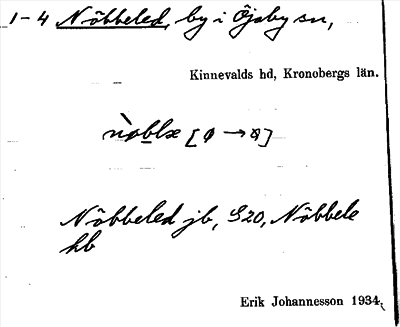 1-4 Nöbbeled, by i Öjaby sn,
Kinnevalds hd, Kronobergs län.
Nöbbeled jb, G20, Nöbbele
hb
Erik Johannesson 1934.